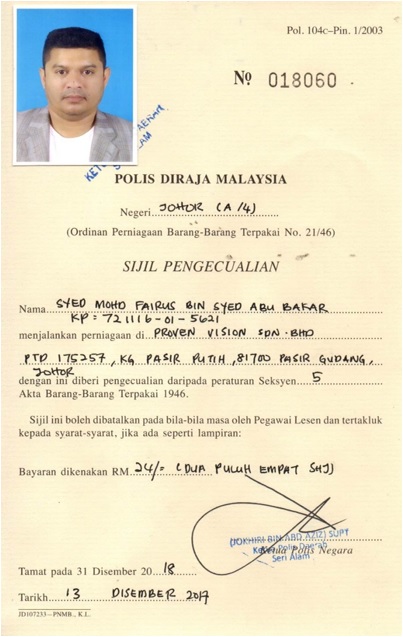 Pol. 104c–Pin. 1/2003
№ 018060
POLIS DIRAJA MALAYSIA
Negeri JOHOR (A/4)
(Ordinan Perniagaan Barang-Barang Terpakai No. 21/46)
SIJIL PENGECUALIAN
Nama SYED MOHD FAIRUS BIN SYED ABU BAKAR
KP = 721116-01-5621
menjalankan perniagaan di PROVEN VISION SDN. BHD
PTD 175257, KG PASIR PUTIH, 81700 PASIR GUDANG,
JOHOR
dengan ini diberi pengecualian daripada peraturan Seksyen 5
Akta Barang-Barang Terpakai 1946.
Sijil ini boleh dibatalkan pada bila-bila masa oleh Pegawai Lesen dan tertakluk
kepada syarat-syarat, jika ada seperti lampiran:
Bayaran dikenakan RM 24/= (DUA PULUH EMPAT SHJ)
(JOKHIRI BIN ABD AZIZ) SUPT
Ketua Polis Daerah
Ketua Polis Negara
Seri Alam
Tamat pada 31 Disember 2018
Tarikh 13 DISEMBER 2017
JD107233–PNMB., K.L.